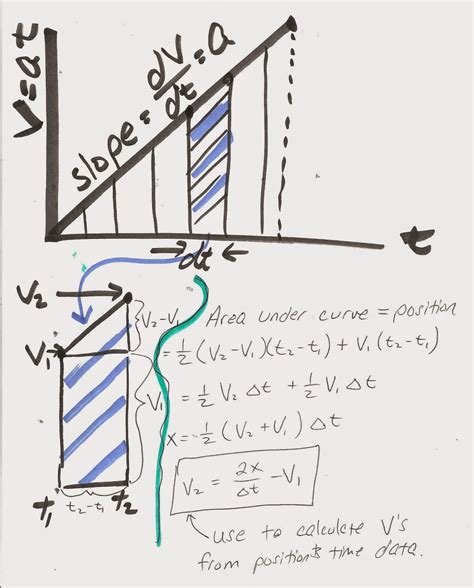 V=at
slope = dV/dt = a
t
→dt←
V₂
V₁
V₂-V₁
V₁
t₁
t₂
t₂-t₁
Area under curve = position
=½(V₂-V₁)(t₂-t₁)+V₁(t₂-t₁)
=½ V₂ Δt + ½ V₁ Δt
x=½(V₂+V₁)Δt
V₂ = 2x/Δt - V₁
use to calculate V's
from position & time data.